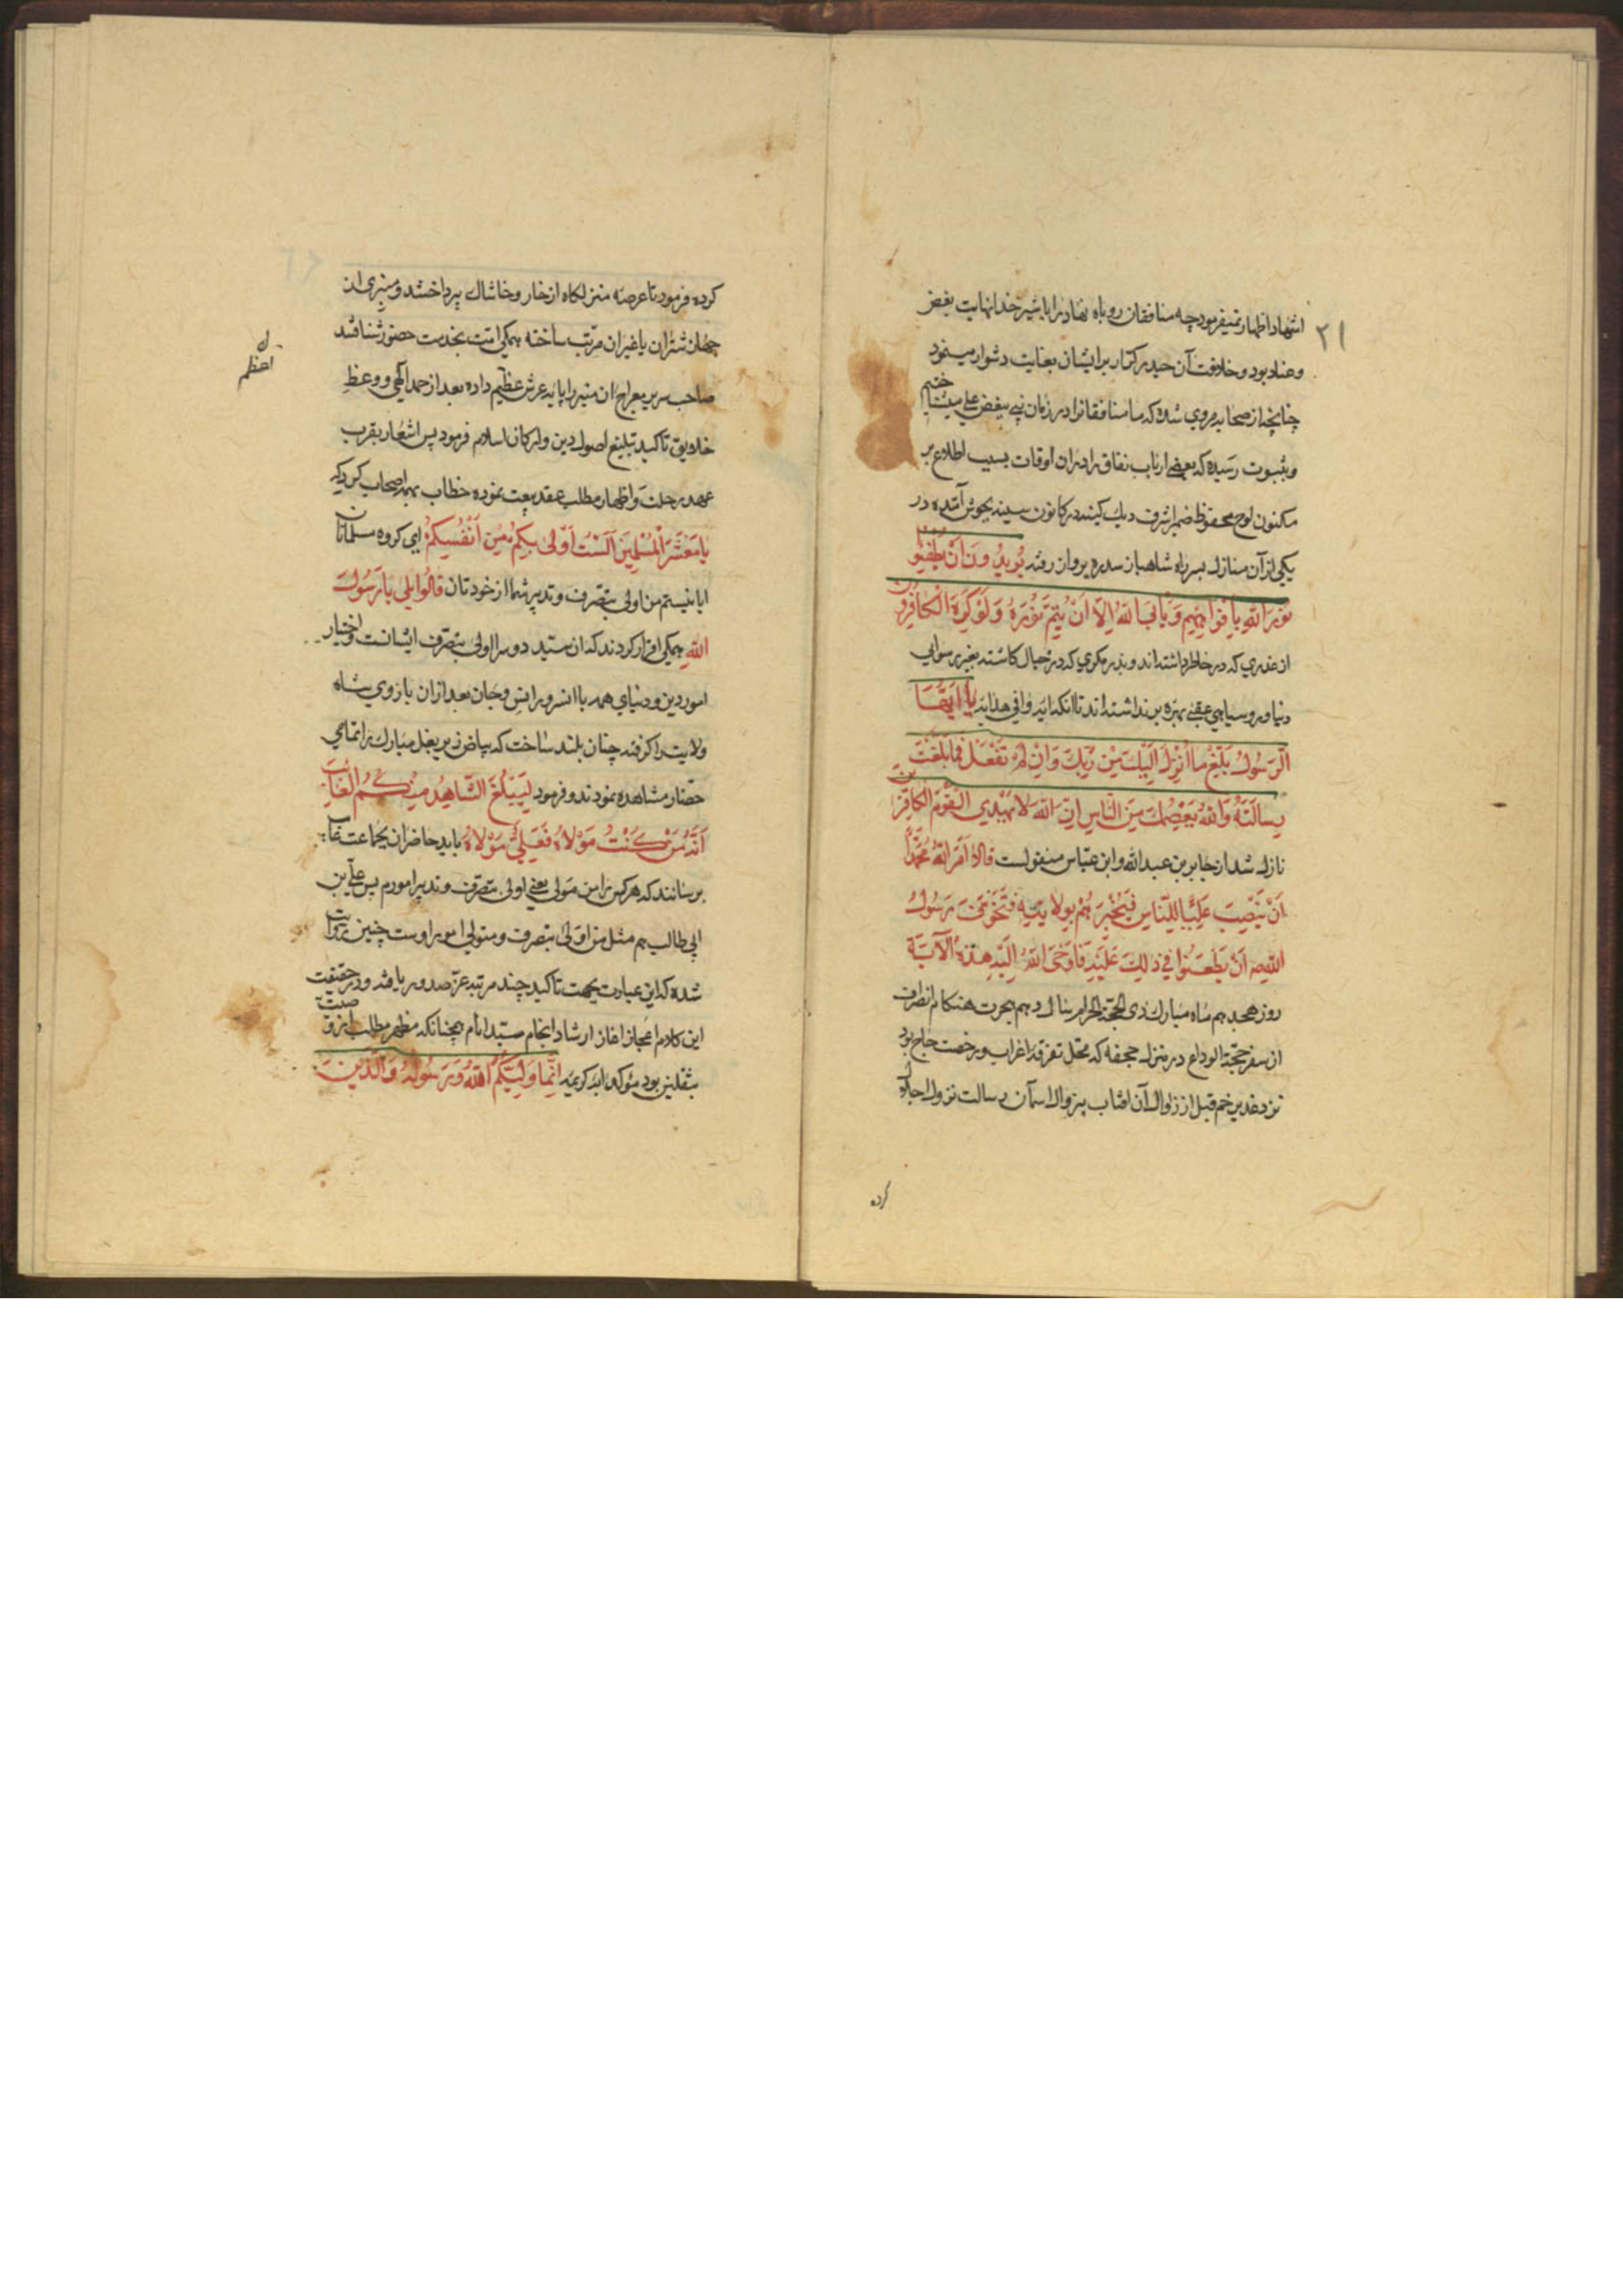 ۲۱
اشهاد اظهار نمیفرمود چه منافقان روباه نهاد را با شیر خدا نهایت بغض
وعناد بود و خلافت آن حیدر کرار بر ایشان بغایت دشوار مینمود
چنانچه از صحابه مروی شده که ما منافقانرا در زمان نبی ببغض علی میشناختیم
و بثبوت رسیده که بعضی ارباب نفاق را در ان اوقات بسبب اطلاع بر
مکنون لوح محفوظ ضمیر اشرف دیک کینه در کانون سینه بجوش آمده در
یکی از آن منازل بسر راه شاهباز سدره پرواز رفته یُرِیدُونَ اَنْ یُطْفِئُوا
نُورَ اللهِ بِاَفْوَاهِهِمْ وَیَأْبَی اللهُ اِلَّا اَنْ یُتِمَّ نُورَهُ وَلَوْ کَرِهَ الْکَافِرُونَ
از غدری که در خاطر داشته‌اند و بذر مکری که در خیال کاشته بغیر رسوایی
دنیا و روسیاهی عقبی بهره بر نداشته‌اند تا آنکه آیه وافی هدایه یَا اَیُّهَا
الرَّسُولُ بَلِّغْ مَا اُنْزِلَ اِلَیْکَ مِنْ رَبِّکَ وَاِنْ لَمْ تَفْعَلْ فَمَا بَلَّغْتَ
رِسَالَتَهُ وَاللهُ یَعْصِمُکَ مِنَ النَّاسِ اِنَّ اللهَ لَا یَهْدِی الْقَوْمَ الْکَافِرِینَ
نازل شد از جابر بن عبدالله و ابن عباس منقولست قَالَا اَمَرَ اللهُ مُحَمَّدًا
اَنْ یَنْصِبَ عَلِیًّا لِلنَّاسِ فَیُخْبِرَهُمْ بِوَلَایَتِهِ فَتَخَوَّفَ رَسُولُ
اللهِ ص اَنْ یَطْعَنُوا فِی ذٰلِکَ عَلَیْهِ فَاَوْحَی اللهُ اِلَیْهِ هٰذِهِ الْآیَةَ
روز هجدهم ماه مبارک ذی الحجة الحرام سال دهم هجرت هنکام انصراف
از سفر حجة الوداع در منزل جحفه که محل تفرقه اعراب و رخصت حاج بود
نزد غدیر خم قبل از زوال آن افتاب بیزوال اسمان رسالت نزول اجلال
کرده
کرده فرمود تا عرصه منزلکاه از خار و خاشاک پرداختند و منبری از
جهاز شتران یا غیر ان مرتب ساخته همکی امت بخدمت حضور شتافتند
صاحب سریر معراج ان منبر را پایه عرش عظیم داده بعد از حمد الهی و وعظ
خلایق تاکید تبلیغ اصول دین و ارکان اسلام فرمود پس اشعار بقرب
عهد رحلت و اظهار مطلب عقد بیعت نموده خطاب بهمه اصحاب کرد که
یَا مَعْشَرَ الْمُسْلِمِینَ اَلَسْتُ اَوْلٰی بِکُمْ مِنْ اَنْفُسِکُمْ ای کروه مسلمانان
ایا نیستم من اولی بتصرف و تدبیر شما از خودتان قَالُوا بَلٰی یَا رَسُولَ
اللهِ همکی اقرار کردند که ان سید دو سرا اولی بتصرف ایشانست و اختیار
امور دین و دنیای همه با انسرور انس و جان بعد ازان بازوی شاه
ولایت را کرفته چنان بلند ساخت که بیاض زیر بغل مبارک را تمامی
حضار مشاهده نمودند و فرمود لِیُبَلِّغَ الشَّاهِدُ مِنْکُمُ الْغَائِبَ
اَنَّهُ مَنْ کُنْتُ مَوْلَاهُ فَعَلِیٌّ مَوْلَاهُ باید حاضران بجماعت غایب
برسانند که هر کس را من مولی یعنی اولی بتصرف و تدبیر امورم پس علی بن
ابی طالب هم مثل من اولی بتصرف و متولی امور اوست چنین روایت
شده که این عبارت بجهت تاکید چند مرتبه عز صدور یافته و در حقیقت
این کلام اعجاز اغاز ارشاد انجام سید انام همچنانکه مظهر مطالب
بثقلین بود مؤکد ایه کریمه اِنَّمَا وَلِیُّکُمُ اللهُ وَرَسُولُهُ وَالَّذِینَ
اعظم